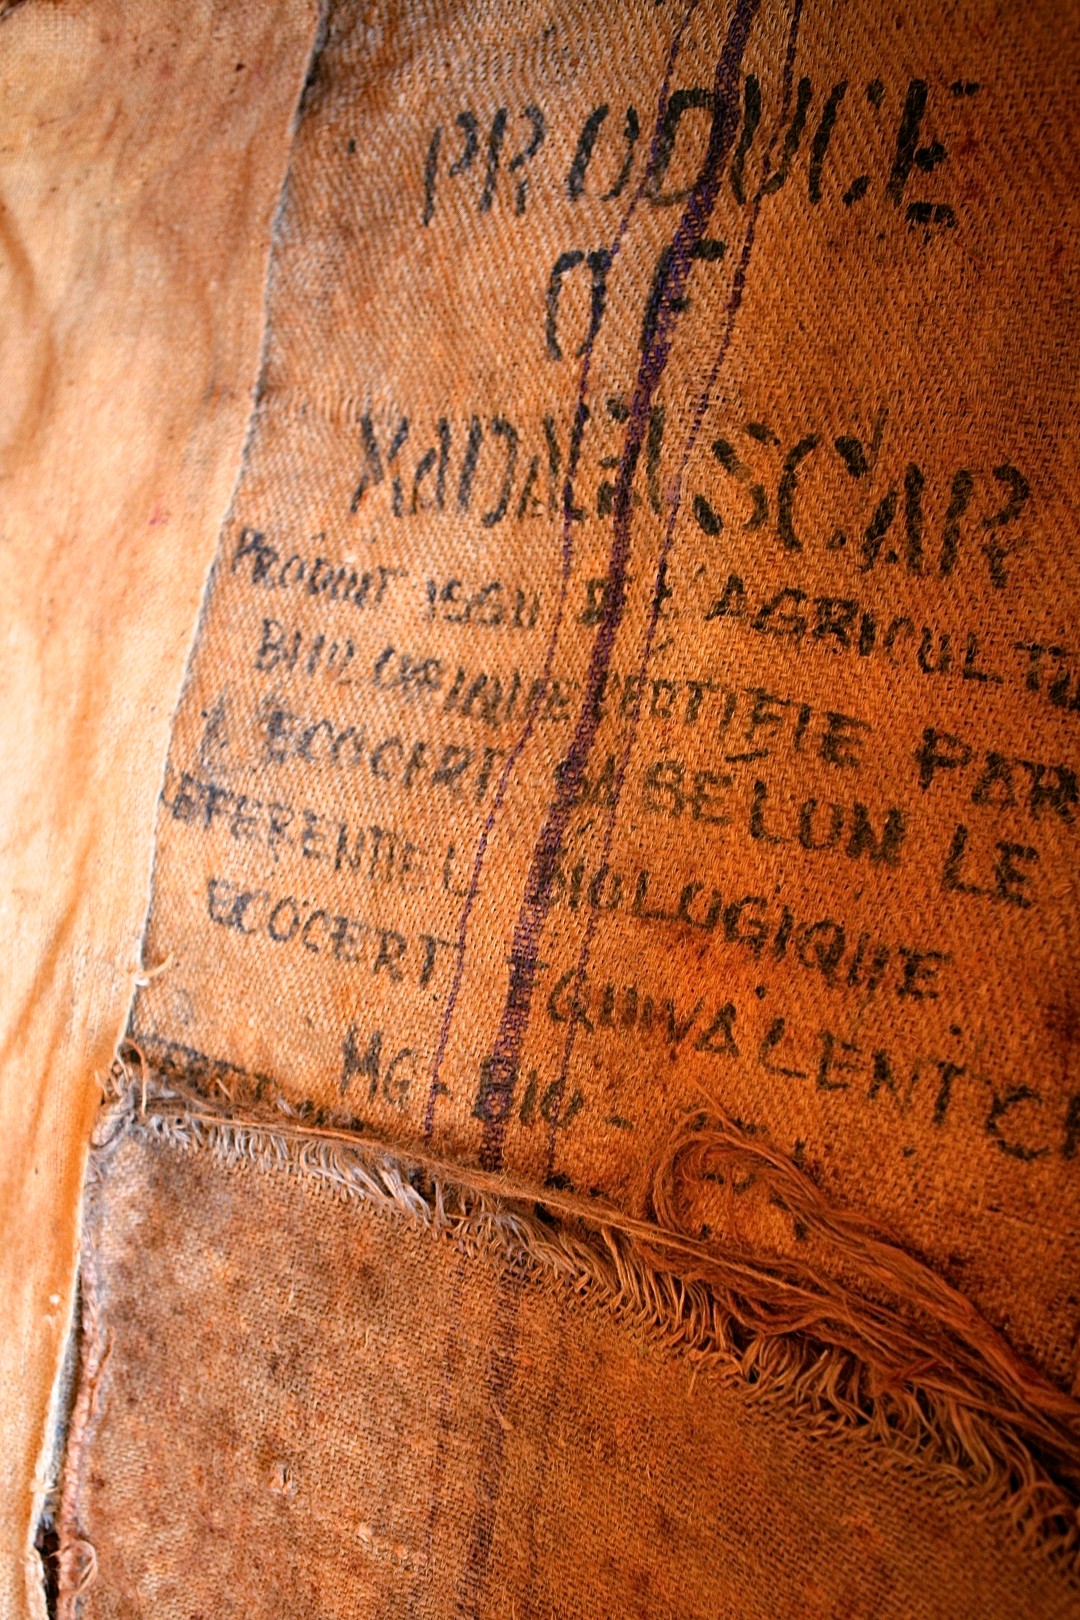 PRODUCE
OF
MADAGASCAR
PRODUIT ISSU DE L'AGRICULTU
BIOLOGIQUE CERTIFIE PAR
ECOCERT SA SELON LE
REFERENTIEL BIOLOGIQUE
ECOCERT EQUIVALENT
MG-BIO-